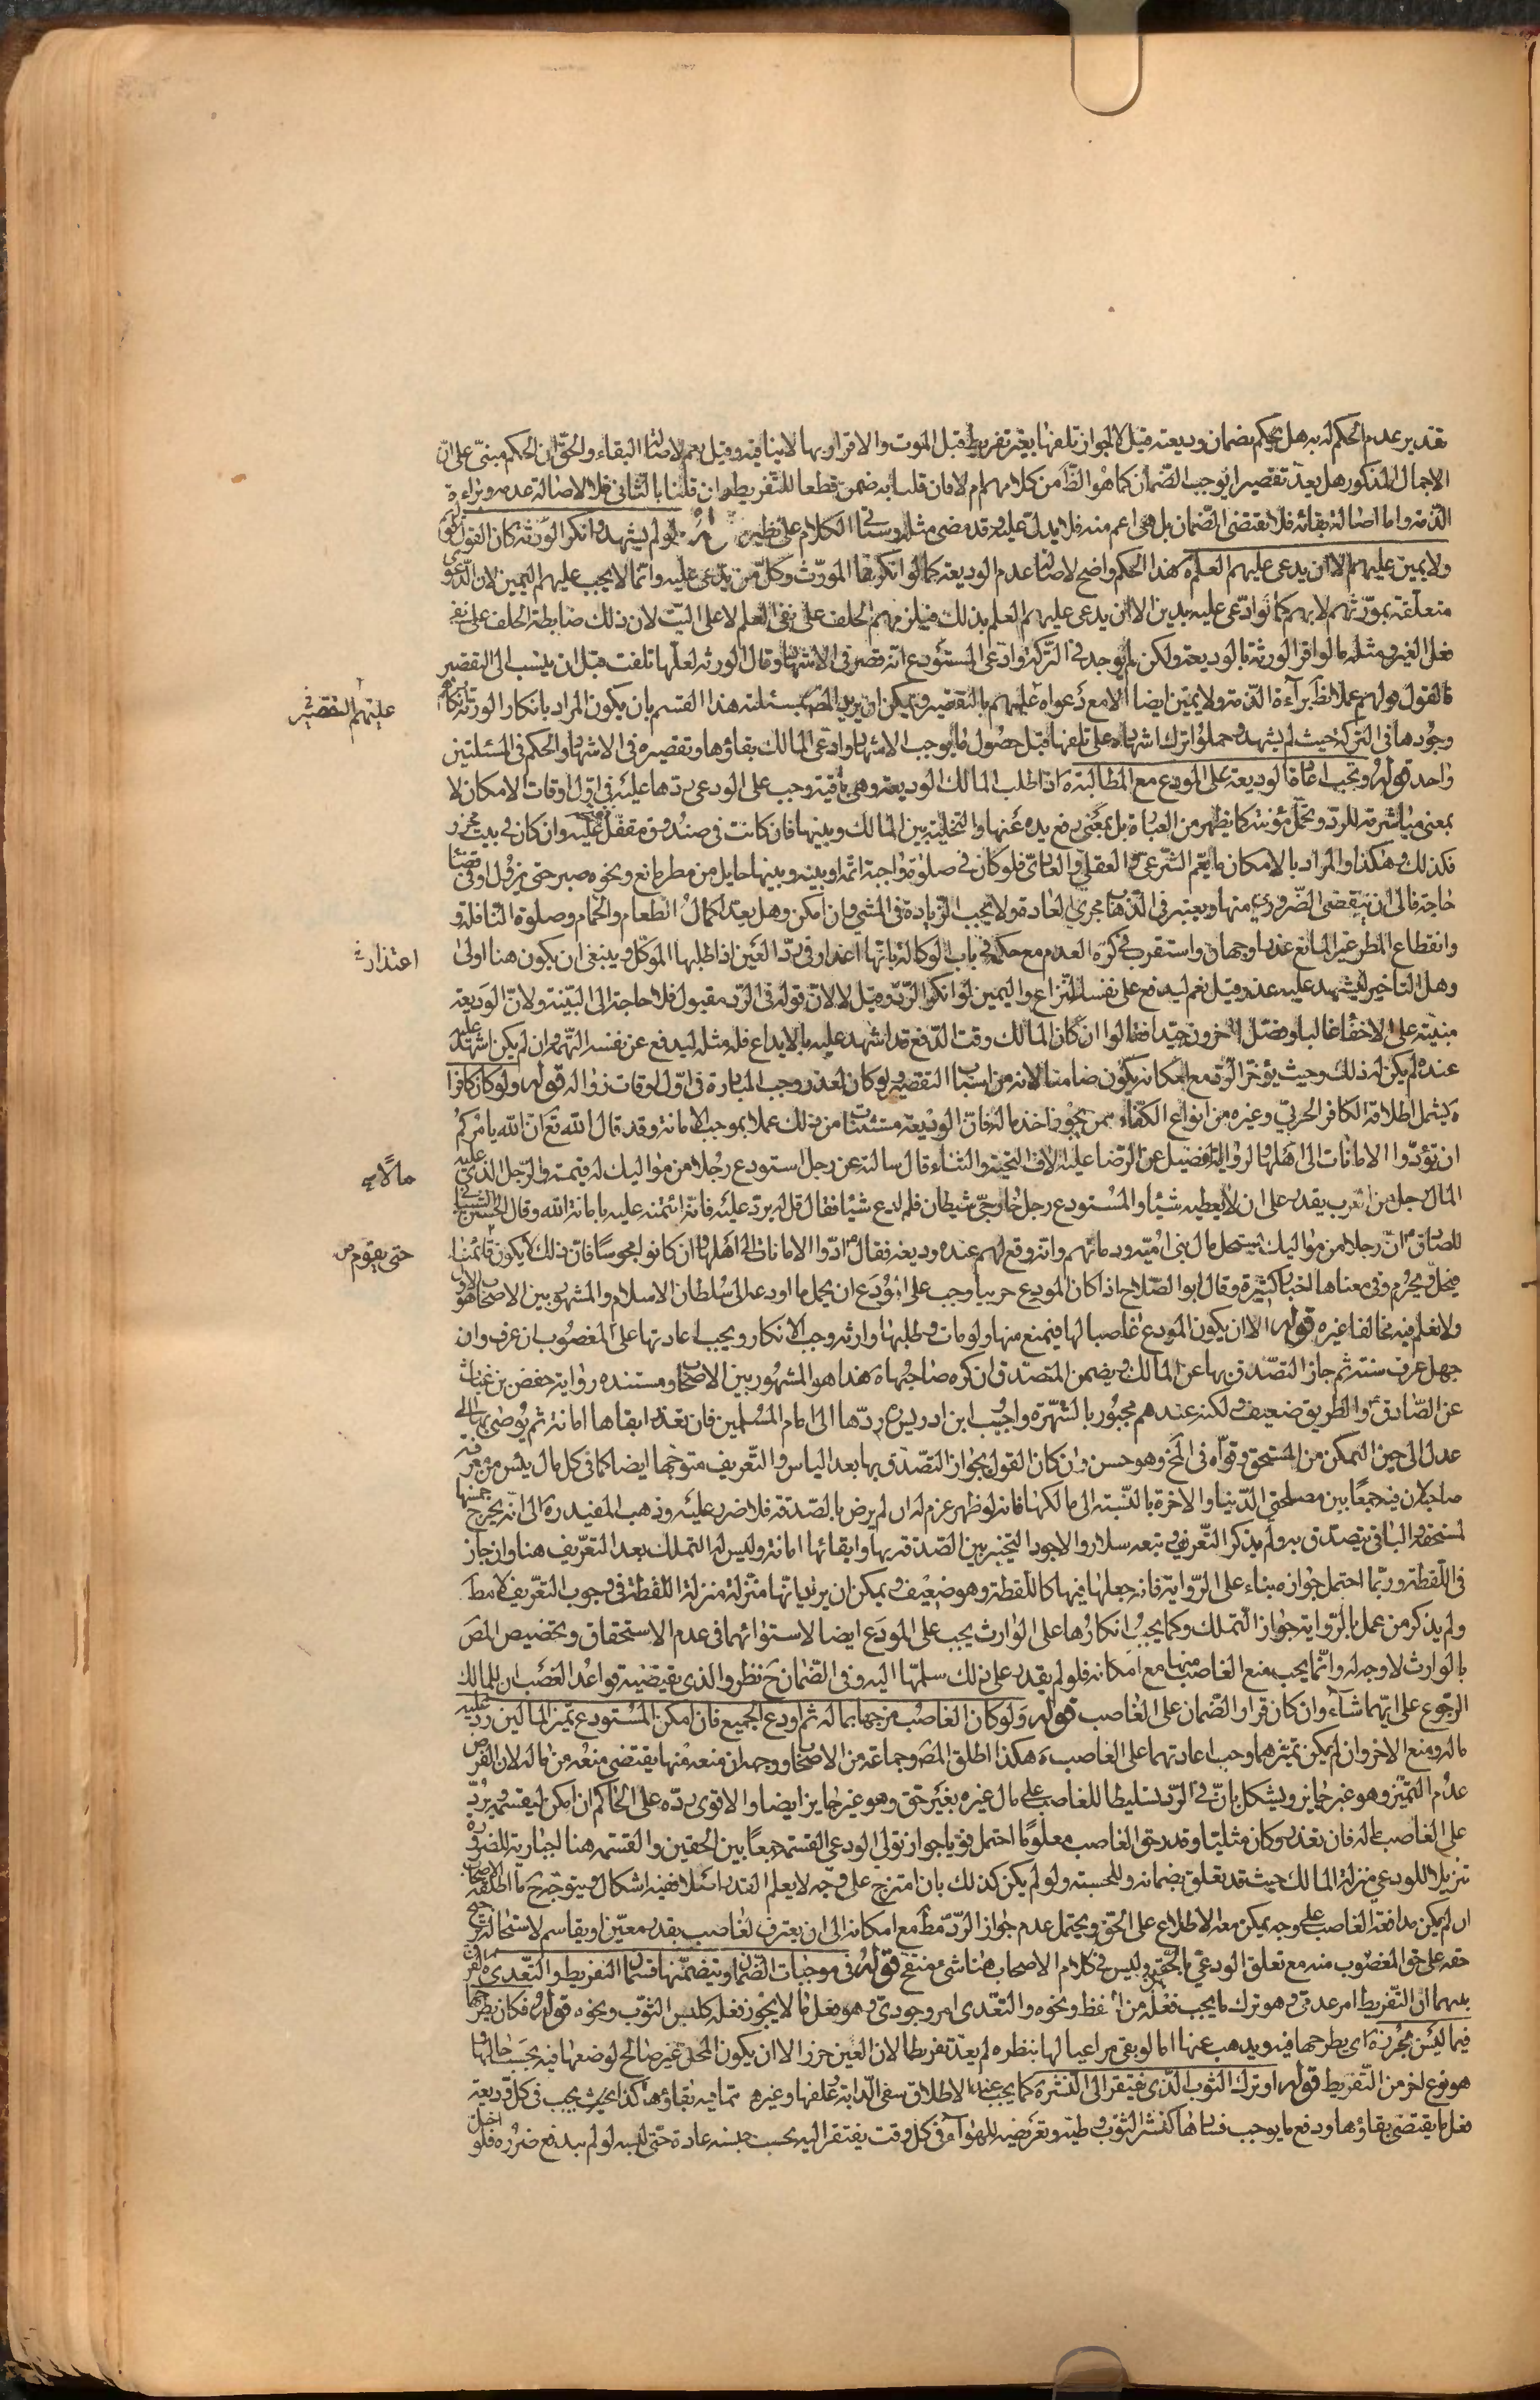 تقدير عدم الحكم له به هل يحكم بضمان وديعته قيل لا لجواز تلفها بغير تفريط قبل الموت والاقرار بها لا ينافيه وقيل نعم لاصالة البقاء والحق ان الحكم مبنى على ان
الاجمال المذكور هل يعد تقصيرا يوجب الضمان كما هو الظ من كلامهم ام لا فان قلنا به ضمن قطعا للتفريط وان قلنا بالثانى فلا لاصالة عدمه وبراءة
الذمة واما اصالة بقائه فلا يقتضى الضمان بل هى اعم منه فلا يدل عليه وقد مضى مثله وسيأتى الكلام على نظيره قوله ولو لم يشهد وانكر الورثة كان القول قولهم
ولا يمين عليهم الا ان يدعى عليهم العلم ه هذا الحكم واضح لاصالة عدم الوديعة كما لو انكرها المورث وكل من يدعى عليه وانما لا يجب عليهم اليمين لان الدعوى
متعلقة بمورثهم لا بهم كما لو ادعى عليه بدين الا ان يدعى عليهم العلم بذلك فيلزمهم الحلف على نفى العلم لا على البت لان ذلك ضابطة الحلف على نفى
فعل الغير ومثله ما لو اقر الورثة بالوديعة ولكن لم يوجد فى التركة وادعى المستودع انه قصر فى الاشهاد وقال الورثة لعلها تلفت قبل ان ينسب الى التقصير
فالقول قولهم عملا بظ براءة الذمة ولا يمين ايضا الا مع دعواه عليهم بالتقصير ويمكن ان يريد المص بمسئلته هذا القسم بان يكون المراد بانكار الورثة انكار
عليهم التقصير
وجودها فى التركة حيث لم يشهد وحملوا ترك اشهاده على تلفها قبل حصول ما يوجب الاشهاد وادعى المالك بقاؤها وتقصيره فى الاشهاد والحكم فى المسئلتين
واحد قوله وتجب اعادة الوديعة على المودع مع المطالبة ه اذا طلب المالك الوديعة وهى باقية وجب على الودعى ردها عليه فى اول اوقات الامكان لا
بمعنى مباشرته للرد وتحمل مؤنته كما يظهر من العبارة بل بمعنى رفع يده عنها والتخلية بين المالك وبينها فان كانت فى صندوق مقفل عليه وان كان فى بيت محرز
فكذلك وهكذا والمراد بالامكان ما يعم الشرعى والعقلى والعادى فلو كان فى صلوة واجبة اتمها او بينه وبينها حايل من مطر مانع ونحوه صبر حتى يزول او فى قضاء
حاجة فالى ان ينقضى الضرورى منها ويعتبر فى الذهاب مجرى العادة ولا يجب الزيادة فى المشى وان امكن وهل يعد اكمال الطعام والحمام وصلوة النافلة
وانقطاع المطر غير المانع عذرا وجهان واستقرب فى كره العدم مع حكمه فى باب الوكالة بانها اعذار فى رد العين اذا طلبها الموكل وينبغى ان يكون هنا اولى
اعتذارا
وهل التاخير ليشهد عليه عذر قيل نعم ليدفع على نفسه النزاع واليمين لو انكر الرد وقيل لا لان قوله فى الرد مقبول فلا حاجة الى البينة ولان الوديعة
مبنية على الاخفاء غالبا وفصل اخرون جيدا فقالوا ان كان المالك وقت الدفع قد اشهد عليه بالايداع فله مثله ليدفع عن نفسه التهمة وان لم يكن اشهد عليه
عنده لم يكن له ذلك وحيث يؤخر الرد مع امكانه يكون ضامنا لانه من اسباب التقصير ولو كان لعذر وجب المبادرة فى اول اوقات زواله قوله ولو كان كافرا
ه يشمل اطلاقه الكافر الحربى وغيره من انواع الكفار ممن يجوز اخذ ماله فان الوديعة مستثناة من ذلك عملا بموجب الامانة وقد قال الله تع ان الله يامركم
ان تؤدوا الامانات الى اهلها ولرواية الفضيل عن الرضا عليه الاف التحية والثناء قال سالته عن رجل استودع رجلا من مواليك له قيمة والرجل الذى عليه
مالا
المال رجل من العرب يقدر على ان لا يعطيه شيئا والمستودع رجل خارجى شيطان فلم ادع شيئا فقال قل له يرد عليه فانه ائتمنه عليه بامانة الله وقال الحسين الشيبانى
للصادق ان رجلا من مواليك يستحل مال بنى امية ودمائهم وانه وقع لهم عنده وديعة فقال ادوا الامانات الى اهلها وان كانوا مجوسا فان ذلك لا يكون قائمنا
حتى يقوم
فيحل ويحرم وفى معناها اخبار كثيرة وقال ابو الصلاح اذا كان المودع حربيا وجب على المودع ان يحمل ما اودعه الى سلطان الاسلام والمشهور بين الاصحاب هو الاول
ولا نعلم فيه مخالفا غيره قوله الا ان يكون المودع غاصبا لها فيمنع منها ولو مات وطلبها وارثه وجب الانكار ويجب اعادتها على المغصوب ان عرف وان
جهل عرف سنة ثم جاز التصدق بها عن المالك ويضمن المتصدق ان كره صاحبها ه هذا هو المشهور بين الاصحاب ومستنده رواية حفص بن غياث
عن الصادق والطريق ضعيف ولكنه عندهم مجبور بالشهرة واوجب ابن ادريس ردها الى امام المسلمين فان تعذر ابقاها امانة ثم يوصى بها الى
عدل الى حين التمكن من المستحق وقواه فى لف وهو حسن وان كان القول بجواز التصدق بها بعد الياس والتعريف متوجها ايضا كما فى كل مال يئس من معرفة
صاحبه لان فيه جمعا بين مصلحتى الدنيا والاخرة بالنسبة الى مالكها فانه لو ظهر غرم له ان لم يرض بالصدقة فلا ضرر عليه وذهب المفيد ره الى انه يخرج خمسها
لمستحقه والباقى يتصدق به ولم يذكر التعريف وتبعه سلار والاجود التخيير بين الصدقة بها وابقائها امانة وليس له التملك بعد التعريف هنا وان جاز
فى اللقطة وربما احتمل جوازه بناء على الرواية فانه جعلها فيها كاللقطة وهو ضعيف ويمكن ان يريد انها منزلة منزلة اللقطة فى وجوب التعريف لا مط
ولم يذكر من عمل بالرواية جواز التملك وكما يجب انكارها على الوارث يجب على المودع ايضا لاستوائهما فى عدم الاستحقاق وتخصيص المص
بالوارث لا وجه له وانما يجب منع الغاصب منها مع امكانه فلو لم يقدر على ذلك سلمها اليه وفى الضمان ح نظر والذى يقتضيه قواعد الغصب ان للمالك
الرجوع على ايهما شاء وان كان قرار الضمان على الغاصب قوله ولو كان الغاصب مزجها بماله ثم اودع الجميع فان امكن المستودع تميز المالين رد عليه
ماله ومنع الاخر وان لم يكن تميزهما وجب اعادتهما على الغاصب ه هكذا اطلق المص وجماعة من الاصحاب ووجه ان منعه منها يقتضى منعه من ماله لان الفرض
عدم التميز وهو غير جايز ويشكل بان فى الرد تسليطا للغاصب على مال غيره بغير حق وهو غير جايز ايضا والاقوى رده على الحاكم ان امكن ليقسمه ويرد
على الغاصب ماله فان تعذر وكان مثليا وقدر حق الغاصب معلوما احتمل قويا جواز تولى الودعى القسمة جمعا بين الحقين والقسمة هنا اجبارية للضرورة
تنزيلا للودعى منزلة المالك حيث قد تعلق بضمانه وللحسبة ولو لم يكن كذلك بان امتزج على وجه لا يعلم القدر اصلا ففيه اشكال ويتوجه ح ما اطلقه الاصحاب
ان لم يكن مدافعة الغاصب على وجه يمكن معه الاطلاع على الحق ويحتمل عدم جواز الرد مط مع امكانه الى ان يعترف الغاصب بقدر معين او يقاسم لاستحالة ترجيح
حقه على حق المغصوب منه مع تعلق الودعى بالحقين وليس فى كلام الاصحاب هنا شئ منقح قوله فى موجبات الضمان وينتظمها قسمان التفريط والتعدى ه الفرق
بينهما ان التفريط امر عدمى وهو ترك ما يجب فعله من الحفظ ونحوه والتعدى امر وجودى وهو فعل ما لا يجوز فعله كلبس الثوب ونحوه قوله فكان يطرحها
فيما ليس بحرز ه اى يطرحها فيه ويذهب عنها اما لو بقى مراعيا لها بنظره لم يعد تفريطا لان العين حرز الا ان يكون المحل غير صالح لوضعها فيه بحسب حالها
هو نوع اخر من التفريط قوله او ترك الثوب الذى يفتقر الى النشر ه كما يجب عند الاطلاق سقى الدابة وعلفها وغيره مما به بقاؤها كذا يجب فى كل وديعة
فعل ما يقتضى بقاؤها ودفع ما يوجب فسادها كنشر الثوب وطيه وتعريضه للهواء فى كل وقت يفتقر اليه بحسب جنسه عادة حتى لبسه لو لم يندفع ضرره فلو اخل